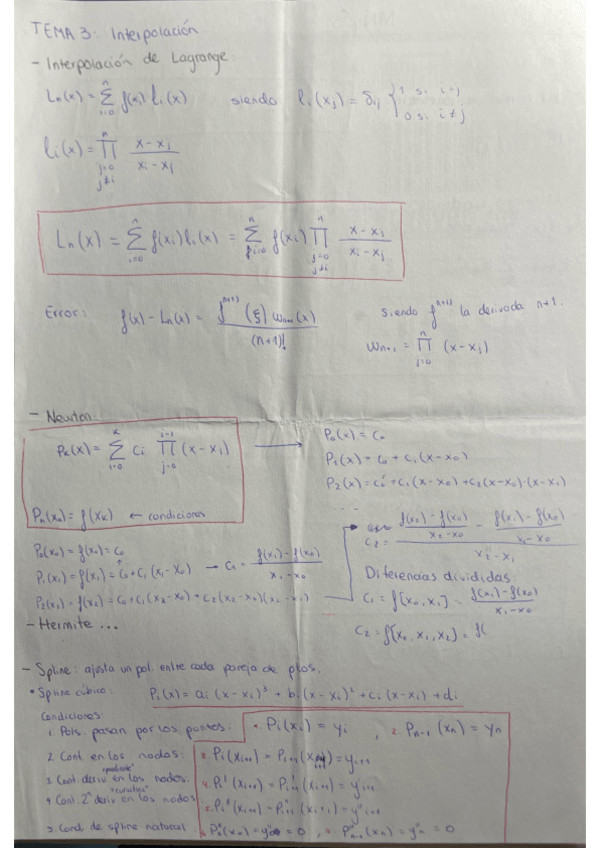 TEMA 3: Interpolación
- Interpolación de Lagrange:
Lₙ(x) = Σⁿᵢ₌₀ f(xᵢ) lᵢ(x) siendo lᵢ(xⱼ) = δᵢⱼ { 1 si i=j
0 si i≠j
lᵢ(x) = Πⁿ j=0 j≠i (x-xⱼ)/(xᵢ-xⱼ)
Lₙ(x) = Σⁿᵢ₌₀ f(xᵢ) lᵢ(x) = Σⁿᵢ₌₀ f(xᵢ) Πⁿ j=0 j≠i (x-xⱼ)/(xᵢ-xⱼ)
Error: f(x) - Lₙ(x) = fⁿ⁺¹(ξ) wₙ₊₁(x) / (n+1)! siendo fⁿ⁺¹ la derivada n+1.
wₙ₊₁ = Πⁿ j=0 (x-xⱼ)
- Newton
Pₖ(x) = Σᵏᵢ₌₀ cᵢ Πⁱ⁻¹ j=0 (x-xⱼ) →
P₀(x) = c₀
P₁(x) = c₀ + c₁(x-x₀)
P₂(x) = c₀ + c₁(x-x₀) + c₂(x-x₀)·(x-x₁)
Pₙ(xₖ) = f(xₖ) ← condiciones
P₀(x₀) = f(x₀) = c₀
P₁(x₁) = f(x₁) = c₀ + c₁(x₁-x₀) → c₁ = (f(x₁)-f(x₀))/(x₁-x₀)
P₂(x₂) = f(x₂) = c₀ + c₁(x₂-x₀) + c₂(x₂-x₀)(x₂-x₁)
c₂ = ((f(x₂)-f(x₀))/(x₂-x₀) - (f(x₁)-f(x₀))/(x₁-x₀)) / (x₂-x₁)
Diferencias divididas
c₁ = f[x₀, x₁] = (f(x₁)-f(x₀))/(x₁-x₀)
c₂ = f[x₀, x₁, x₂] = f(
- Hermite ...
- Spline: ajusta un pol. entre cada pareja de ptos.
• Spline cúbico: Pᵢ(x) = aᵢ(x-xᵢ)³ + bᵢ(x-xᵢ)² + cᵢ(x-xᵢ) + dᵢ
Condiciones:
1. Pols. pasan por los puntos: 1. Pᵢ(xᵢ) = yᵢ , 2. Pₙ₋₁(xₙ) = yₙ
2. Cont. en los nodos: 3. Pᵢ(xᵢ₊₁) = Pᵢ₊₁(xᵢ₊₁) = yᵢ₊₁
3. Cont. deriv. en los nodos: 4. Pᵢ'(xᵢ₊₁) = P'ᵢ₊₁(xᵢ₊₁) = y'ᵢ₊₁
4. Cont. 2ª deriv en los nodos 5. Pᵢ''(xᵢ₊₁) = P''ᵢ₊₁(xᵢ₊₁) = y''ᵢ₊₁
5. Cond. de spline natural P₀''(x₀) = y''₀ = 0 , P''ₙ₋₁(xₙ) = y''ₙ = 0